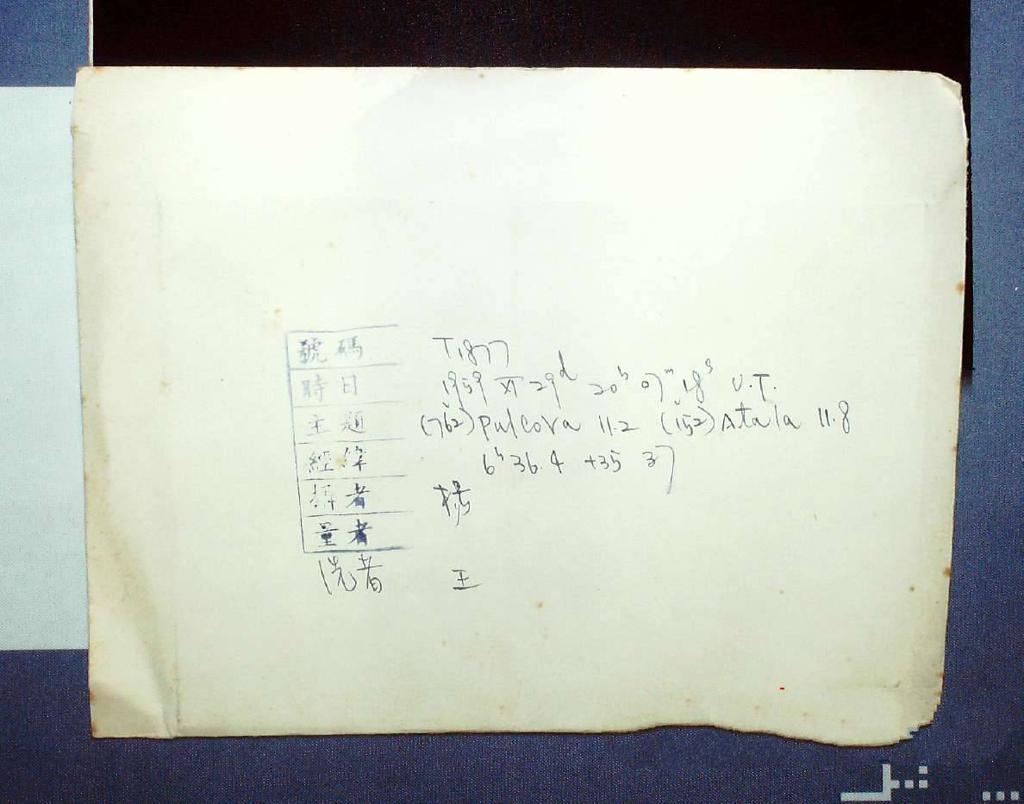 號碼 T1877
時日 1959 XI 29d 20h 07m 18s U.T.
主題 (762) Pulcova 11.2 (152) Atala 11.8
經緯 6h 36.4 +35 37
攝者 楊
量者
洗者 王